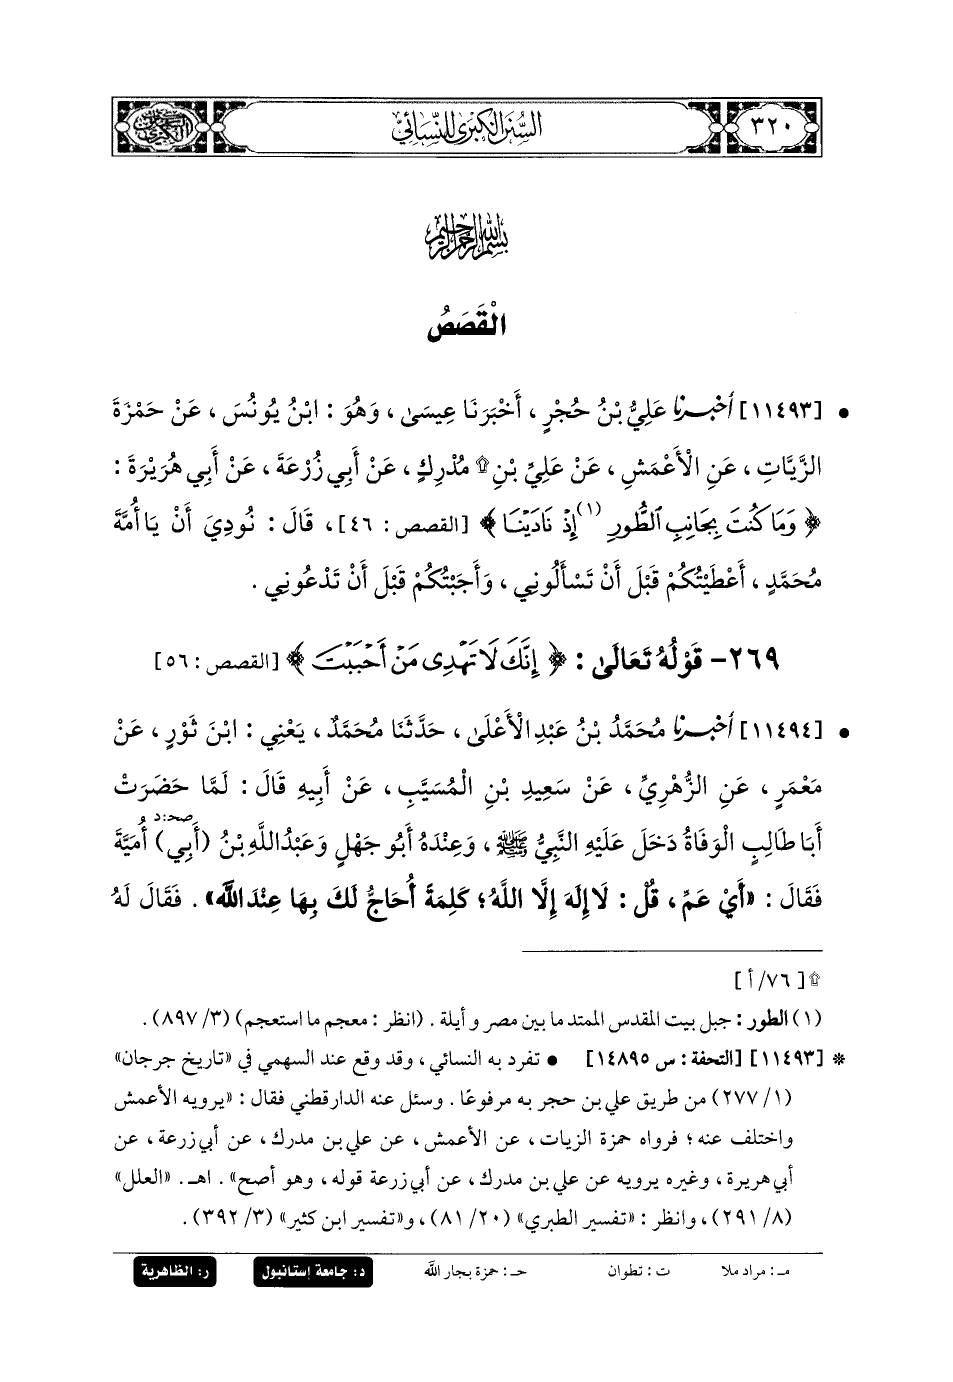 ٣٢٠
السُّنَن الكبرى للنسائي
بسم الله الرحمن الرحيم
الْقَصَصُ
• [١١٤٩٣] أَخْبَرَنَا عَلِيُّ بْنُ حُجْرٍ، أَخْبَرَنَا عِيسَى، وَهُوَ: ابْنُ يُونُسَ، عَنْ حَمْزَةَ
الزَّيَّاتِ، عَنِ الْأَعْمَشِ، عَنْ عَلِيِّ بْنِ۩ مُدْرِكٍ، عَنْ أَبِي زُرْعَةَ، عَنْ أَبِي هُرَيْرَةَ:
﴿وَمَا كُنتَ بِجَانِبِ ٱلطُّورِ (١) إِذْ نَادَيْنَا﴾ [القصص: ٤٦]، قَالَ: نُودِيَ أَنْ يَا أُمَّةَ
مُحَمَّدٍ، أَعْطَيْتُكُمْ قَبْلَ أَنْ تَسْأَلُونِي، وَأَجَبْتُكُمْ قَبْلَ أَنْ تَدْعُونِي.
٢٦٩- قَوْلُهُ تَعَالَى: ﴿إِنَّكَ لَا تَهْدِى مَنْ أَحْبَبْتَ﴾ [القصص: ٥٦]
• [١١٤٩٤] أَخْبَرَنَا مُحَمَّدُ بْنُ عَبْدِ الْأَعْلَى، حَدَّثَنَا مُحَمَّدٌ، يَعْنِي: ابْنَ ثَوْرٍ، عَنْ
مَعْمَرٍ، عَنِ الزُّهْرِيِّ، عَنْ سَعِيدِ بْنِ الْمُسَيَّبِ، عَنْ أَبِيهِ قَالَ: لَمَّا حَضَرَتْ
أَبَا طَالِبٍ الْوَفَاةُ دَخَلَ عَلَيْهِ النَّبِيُّ ﷺ، وَعِنْدَهُ أَبُو جَهْلٍ وَعَبْدُ اللَّهِ بْنُ (أَبِي) صحـ:د أُمَيَّةَ
فَقَالَ: «أَيْ عَمِّ، قُلْ: لَا إِلَهَ إِلَّا اللَّهُ؛ كَلِمَةً أُحَاجُّ لَكَ بِهَا عِنْدَ اللَّهِ». فَقَالَ لَهُ
۩ [٧٦/ أ]
(١) الطور: جبل بيت المقدس الممتد ما بين مصر و أيلة. (انظر: معجم ما استعجم) (٣/ ٨٩٧).
* [١١٤٩٣] [التحفة: س ١٤٨٩٥] • تفرد به النسائي، وقد وقع عند السهمي في «تاريخ جرجان»
(١/ ٢٧٧) من طريق علي بن حجر به مرفوعًا. وسئل عنه الدارقطني فقال: «يرويه الأعمش
واختلف عنه؛ فرواه حمزة الزيات، عن الأعمش، عن علي بن مدرك، عن أبي زرعة، عن
أبي هريرة، وغيره يرويه عن علي بن مدرك، عن أبي زرعة قوله، وهو أصح». اهـ. «العلل»
(٨/ ٢٩١)، وانظر: «تفسير الطبري» (٢٠/ ٨١)، و«تفسير ابن كثير» (٣/ ٣٩٢).
مـ: مراد ملا ت: تطوان حـ: حمزة بجار الله د: جامعة إستانبول ر: الظاهرية